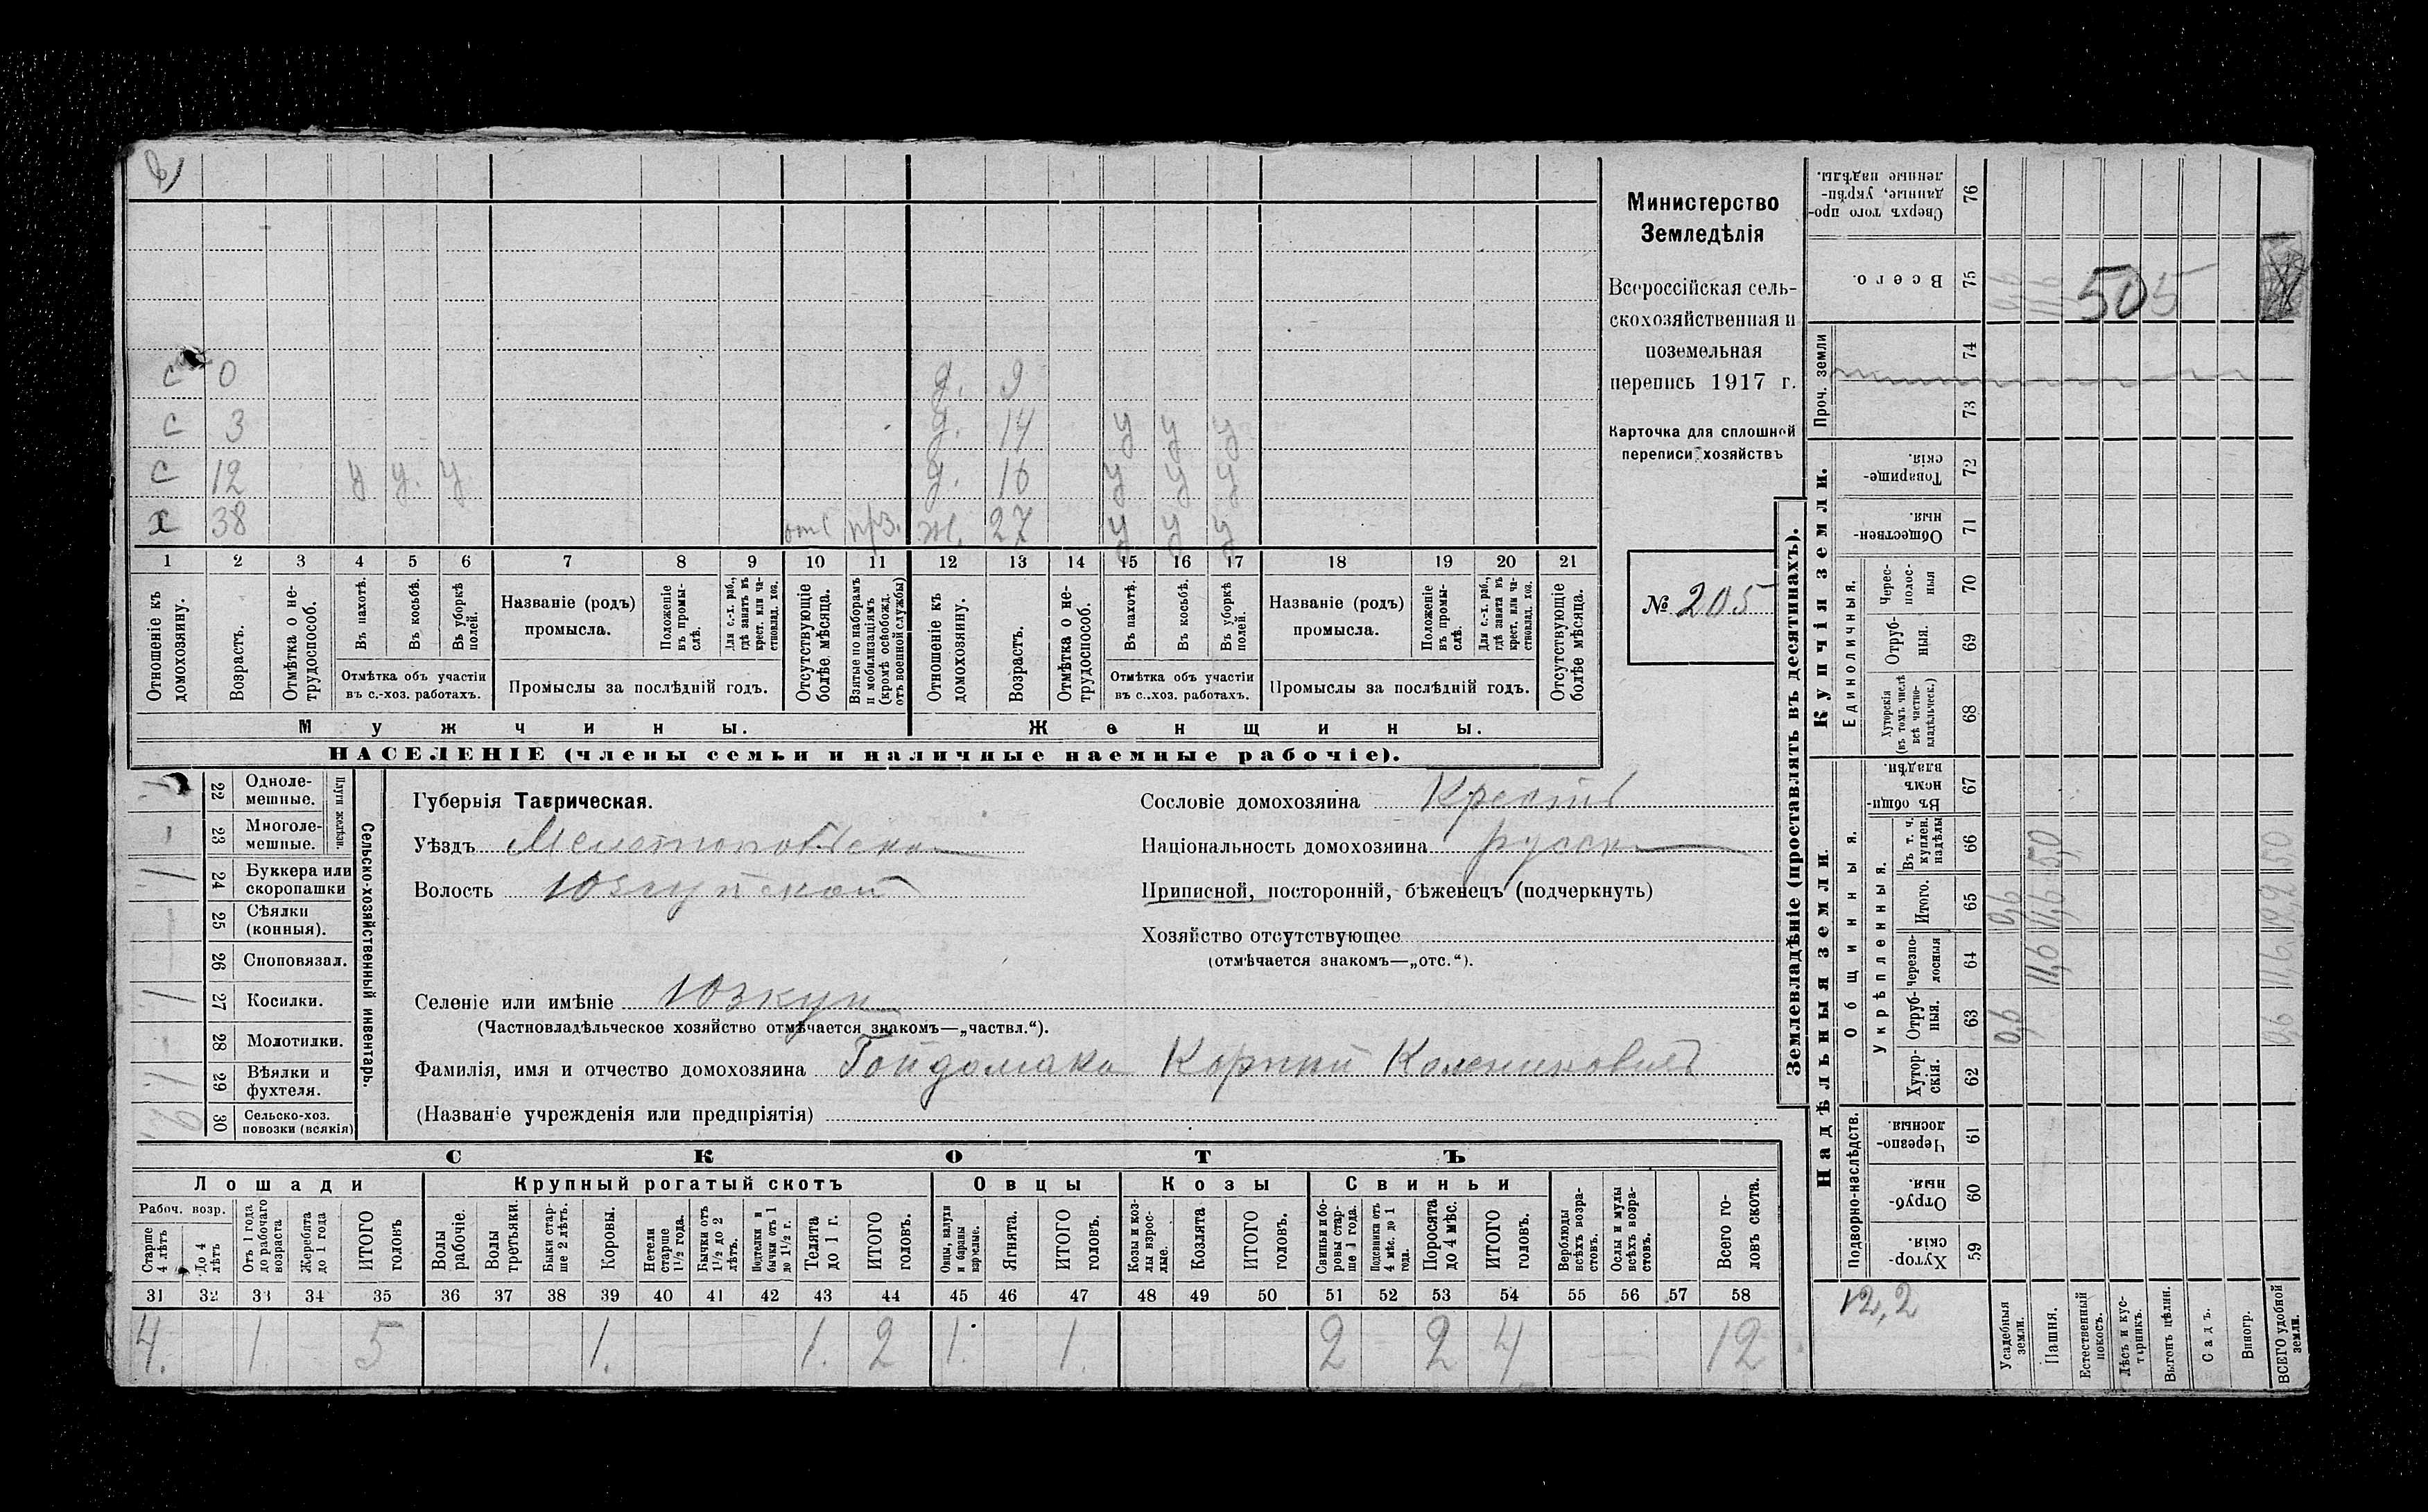 с 0 д. 9
с 3 д. 14 у у у
с 12 у у. у. д. 16 у у у
х 38 отс ж. 27 у у у
1 2 3 4 5 6 7 8 9 10 11 12 13 14 15 16 17 18 19 20 21
Отношеніе къ домохозяину.
Возрастъ.
Отмѣтка о не-трудоспособ.
Въ пахотѣ.
Въ косьбѣ.
Въ уборкѣ полей.
Отмѣтка объ участіи
въ с.-хоз. работахъ.
Названіе (родъ)
промысла.
Положеніе въ промы-слѣ.
Для с.-х. раб., гдѣ занятъ въ крест. или ча-стновлад. хоз.
Промыслы за послѣдній годъ.
Отсутствующіе болѣе мѣсяца.
Взятые по наборамъ и мобилизаціямъ (кромѣ освобожд. отъ военной службы)
Отношеніе къ домохозяину.
Возрастъ.
Отмѣтка о не-трудоспособ.
Въ пахотѣ.
Въ косьбѣ.
Въ уборкѣ полей.
Отмѣтка объ участіи
въ с.-хоз. работахъ.
Названіе (родъ)
промысла.
Положеніе въ промы-слѣ.
Для с.-х. раб., гдѣ занята въ крест. или ча-стновлад. хоз.
Промыслы за послѣдній годъ.
Отсутствующіе болѣе мѣсяца.
Мужчины. Женщины.
НАСЕЛЕНІЕ (члены семьи и наличные наемные рабочіе).
Министерство
Земледѣлія
Всероссійская сель-
скохозяйственная и
поземельная
перепись 1917 г.
Карточка для сплошной
переписи хозяйствъ
№ 205
22 Одноле-мешные.
23 Многоле-мешные.
Плуги желѣзн.
24 Буккера или скоропашки
25 Сѣялки (конныя).
26 Сноповязал.
27 Косилки.
28 Молотилки.
29 Вѣялки и фухтеля.
30 Сельско-хоз. повозки (всякія)
Сельско-хозяйственный инвентарь.
Губернія Таврическая.
Уѣздъ Мелитопольскa
Волость Юзкуйской
Селеніе или имѣніе Юзкуи
(Частновладѣльческое хозяйство отмѣчается знакомъ—„частвл.“).
Фамилія, имя и отчество домохозяина Гойдомака Корній
(Названіе учрежденія или предпріятія)
Сословіе домохозяина Крестн
Національность домохозяина русск
Приписной, посторонній, бѣженецъ (подчеркнуть)
Хозяйство отсутствующее
(отмѣчается знакомъ—„отс.“).
СКОТЪ
Лошади Крупный рогатый скотъ Овцы Козы Свиньи
Рабоч. возр.
Старше 4 лѣтъ
До 4 лѣтъ
Отъ 1 года до рабочаго возраста
Жеребята до 1 года
ИТОГО головъ
Волы рабочіе.
Волы третьяки.
Быки стар-ше 2 лѣтъ.
Коровы.
Нетели старше 1½ года.
Бычки отъ 1½ до 2 лѣтъ.
Подтелки и бычки отъ 1 до 1½ г.
Телята до 1 г.
ИТОГО головъ.
Овцы, валухи и бараны взрослые.
Ягнята.
ИТОГО головъ.
Козы и коз-лы взрос-лые.
Козлята
ИТОГО головъ.
Свиньи и бо-ровы стар-ше 1 года.
Подсвинки отъ 4 мѣс. до 1 года.
Поросята до 4 мѣс.
ИТОГО головъ.
Верблюды всѣхъ возра-стовъ.
Ослы и мулы всѣхъ возра-стовъ.
Всего го-ловъ скота.
31 32 33 34 35 36 37 38 39 40 41 42 43 44 45 46 47 48 49 50 51 52 53 54 55 56 57 58
4. 1 5 1. 1. 2 1. 1. 2 2 4 12
Землевладѣніе (проставлять въ десятинахъ).
Надѣльныя земли. Купчія земли. Проч. земли
Подворно-наслѣдств.
Общинныя.
Укрѣпленныя.
Единоличныя.
Сверхъ того про-данные, укрѣп-ленные надѣлы. 76
Всего. 75
74
73
Товарище-скія. 72
Обществен-ныя. 71
Черес-полос-ныя 70
Отруб-ныя. 69
Хуторскія (въ томъ числѣ всѣ частно-владѣльческ.) 68
Въ общин-номъ владѣн. 67
Въ т. ч. куплен. надѣлы 66
Итого. 65
Черезпо-лосныя 64
Отруб-ныя. 63
Хутор-скія. 62
Черезпо-лосныя. 61
Отруб-ныя. 60
Хутор-скія. 59
12,2
Усадебныя земли. 0,6 0,6
Пашня. 11,6 11,6 5,0
Естественный покосъ.
Лѣсъ и кус-тарникъ.
Выгонъ цѣлин.
Садъ.
Виногр.
ВСЕГО удобной земли. 0,6 11,6 12,2 5,0
505